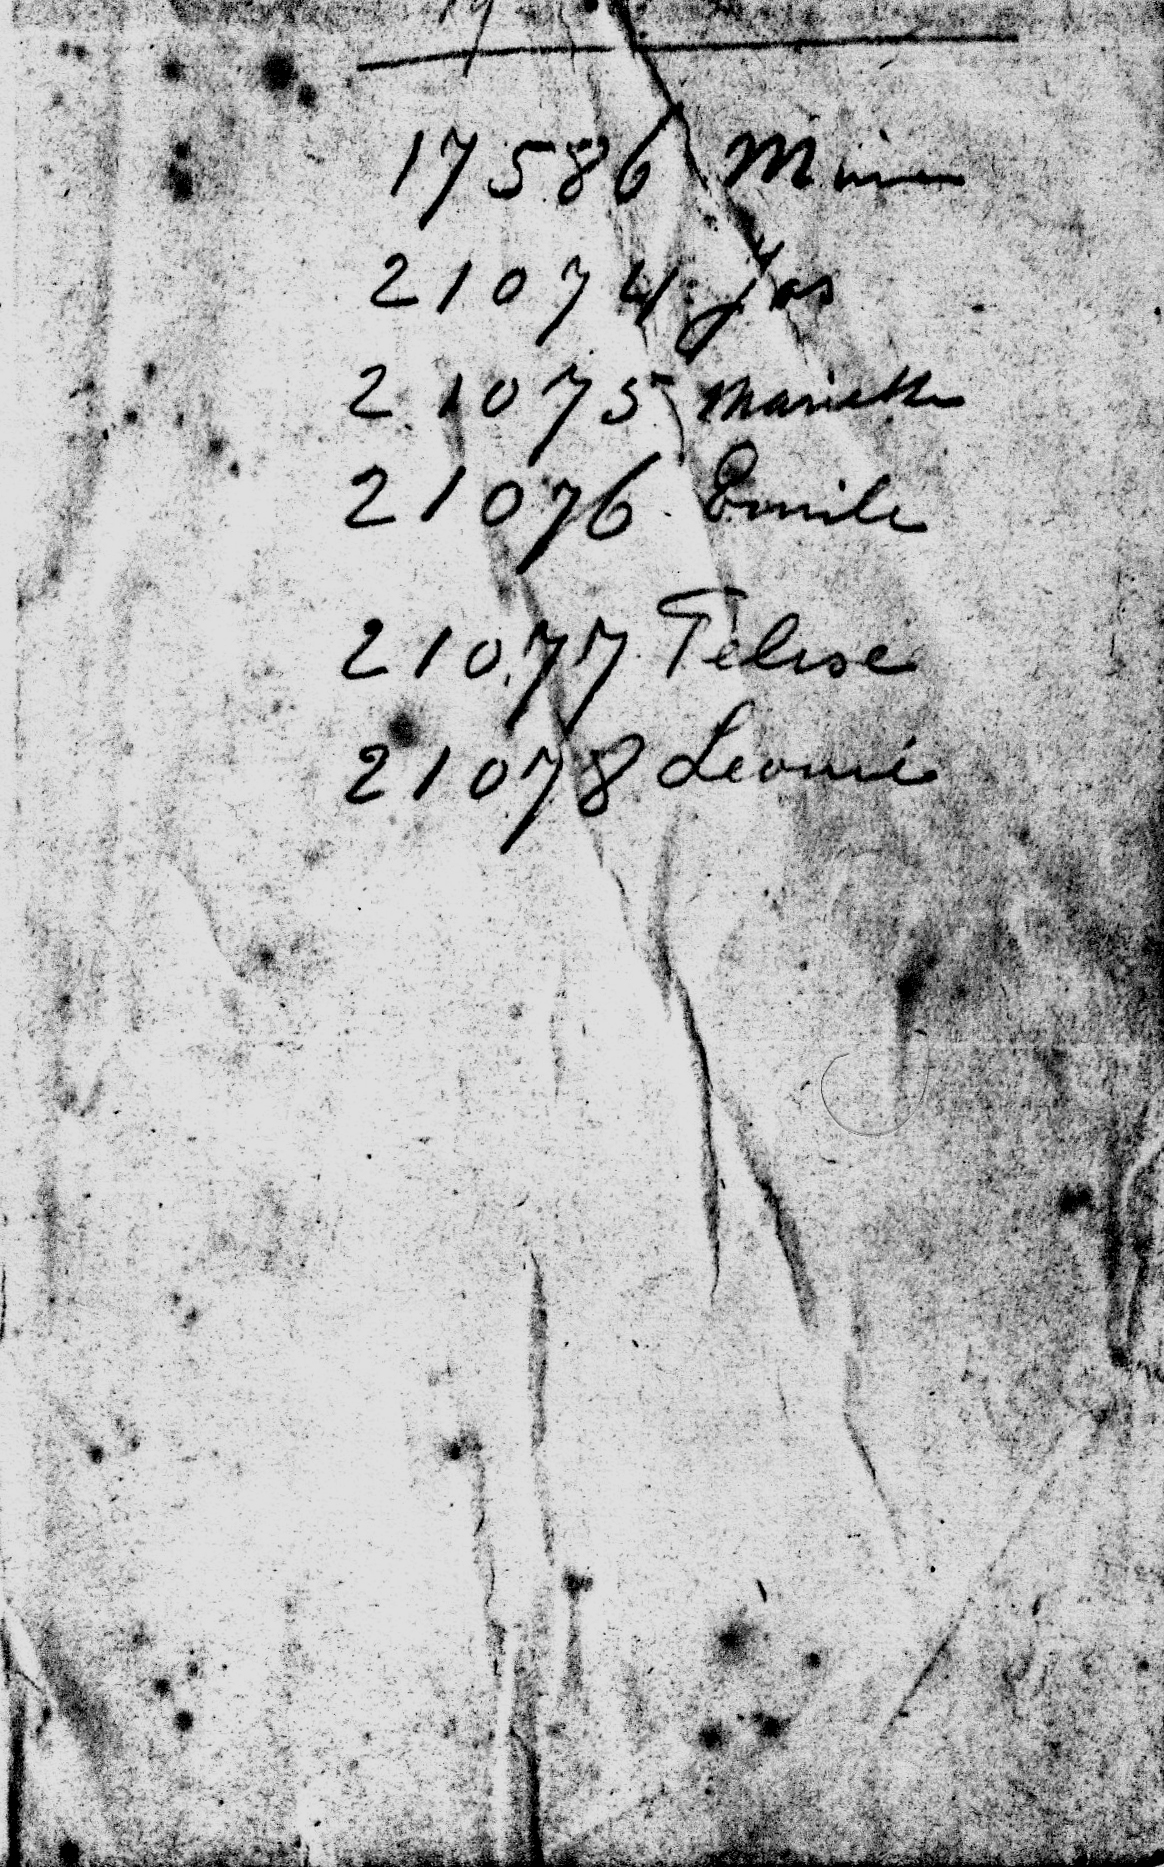 17586
21074 Jos
21075 Mariette
21076 Emile
21077 Telise
21078 Leonie